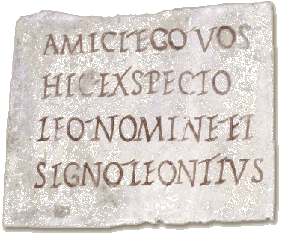 AMICI EGO VOS
HIC EXSPECTO
LEO NOMINE ET
SIGNO LEONTIVS